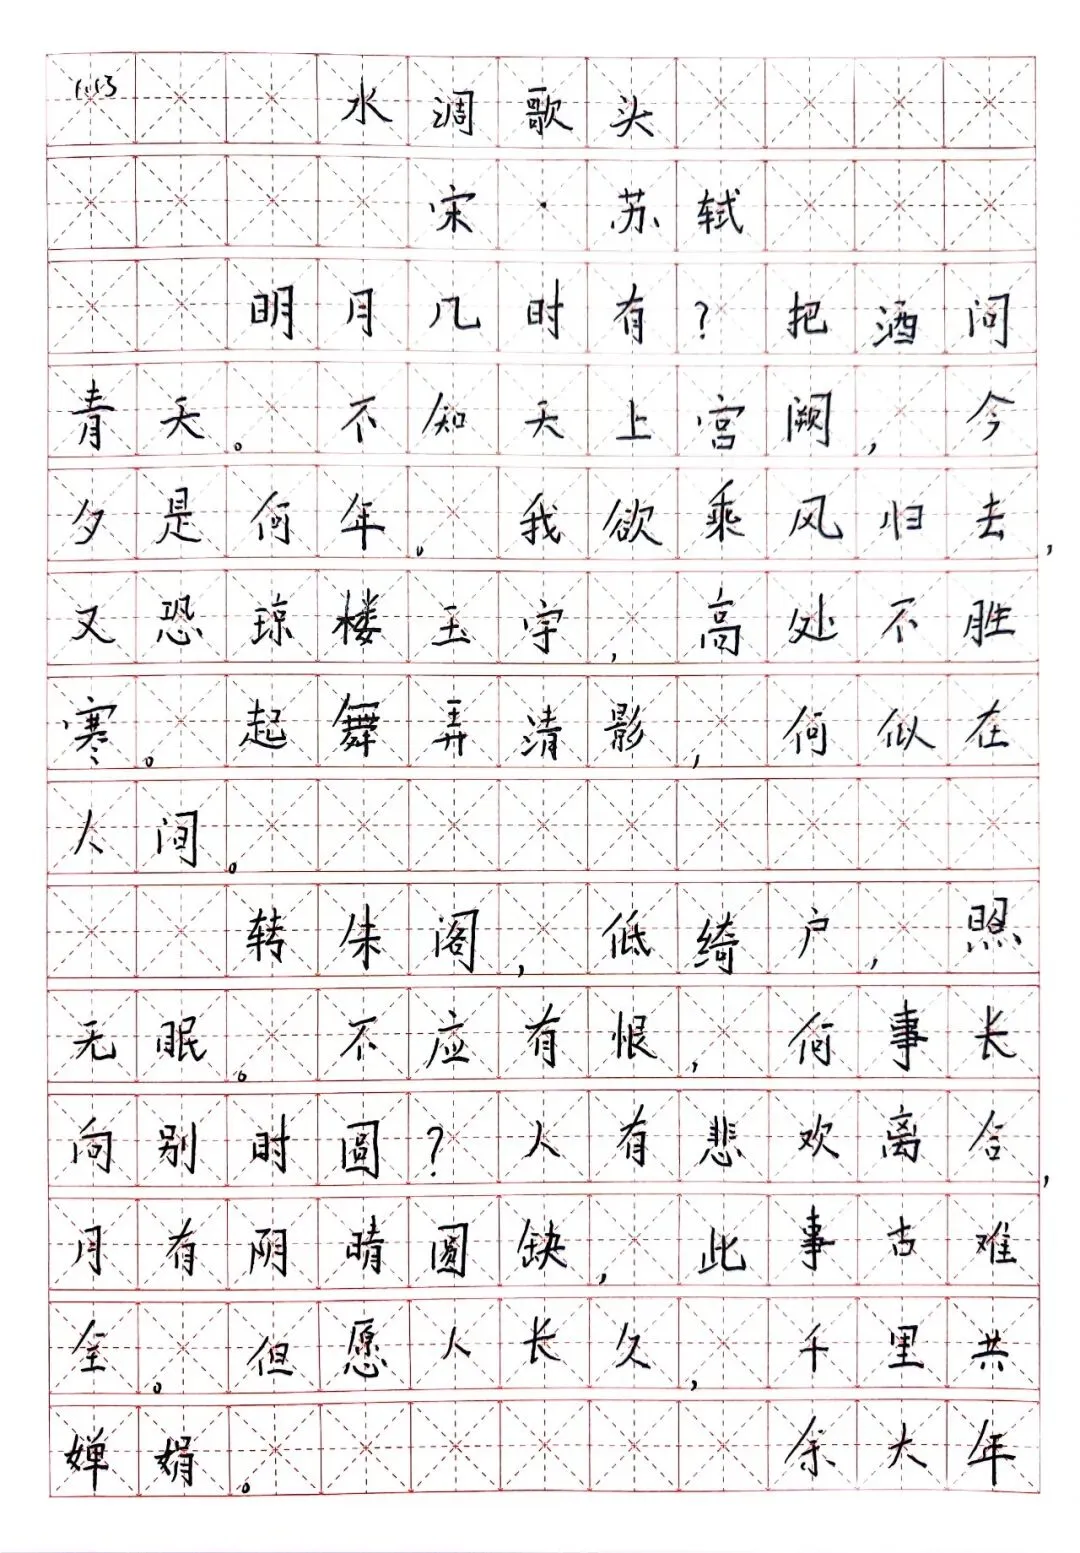 水调歌头
宋·苏轼
明月几时有？把酒问
青天。不知天上宫阙，今
夕是何年。我欲乘风归去，
又恐琼楼玉宇，高处不胜
寒。起舞弄清影，何似在
人间。
转朱阁，低绮户，照
无眠。不应有恨，何事长
向别时圆？人有悲欢离合，
月有阴晴圆缺，此事古难
全。但愿人长久，千里共
婵娟。余大年